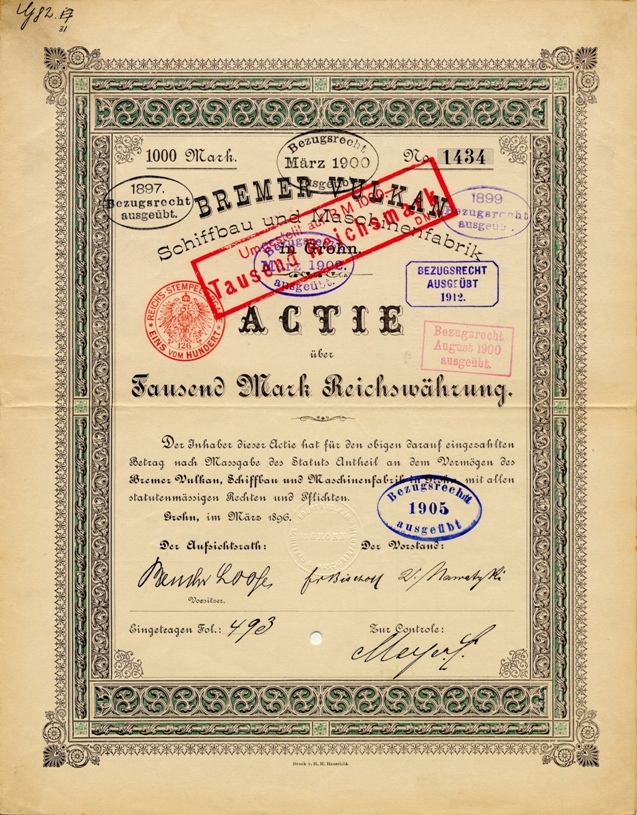 1000 Mark.
No 1434
Bezugsrecht
März 1900
ausgeübt.
1897.
Bezugsrecht
ausgeübt.
1899
Bezugsrecht
ausgeü
BREMER VULKAN
Schiffbau und Maschinenfabrik
in Grohn.
Umgestellt auf R.M. 1000.=
Tausend Reichsmark
Bezugsrecht
März 1902.
ausgeübt.
BEZUGSRECHT
AUSGEÜBT
1912.
REICHS-STEMPEL
EINS VOM HUNDERT
126
ACTIE
Bezugsrecht
August 1900
ausgeübt.
über
Tausend Mark Reichswährung.
Der Inhaber dieser Actie hat für den obigen darauf eingezahlten
Betrag nach Massgabe des Statuts Antheil an dem Vermögen des
Bremer Vulkan, Schiffbau und Maschinenfabrik in Grohn, mit allen
statutenmässigen Rechten und Pflichten.
Grohn, im März 1896.
Bezugsrecht
1905
ausgeübt
Der Aufsichtsrath:
Der Vorstand:
Loose
Fr Bischoff
V. Nawatzki
Vorsitzer.
Eingetragen Fol.: 493
Zur Controle:
Druck v. H. M. Hauschild.